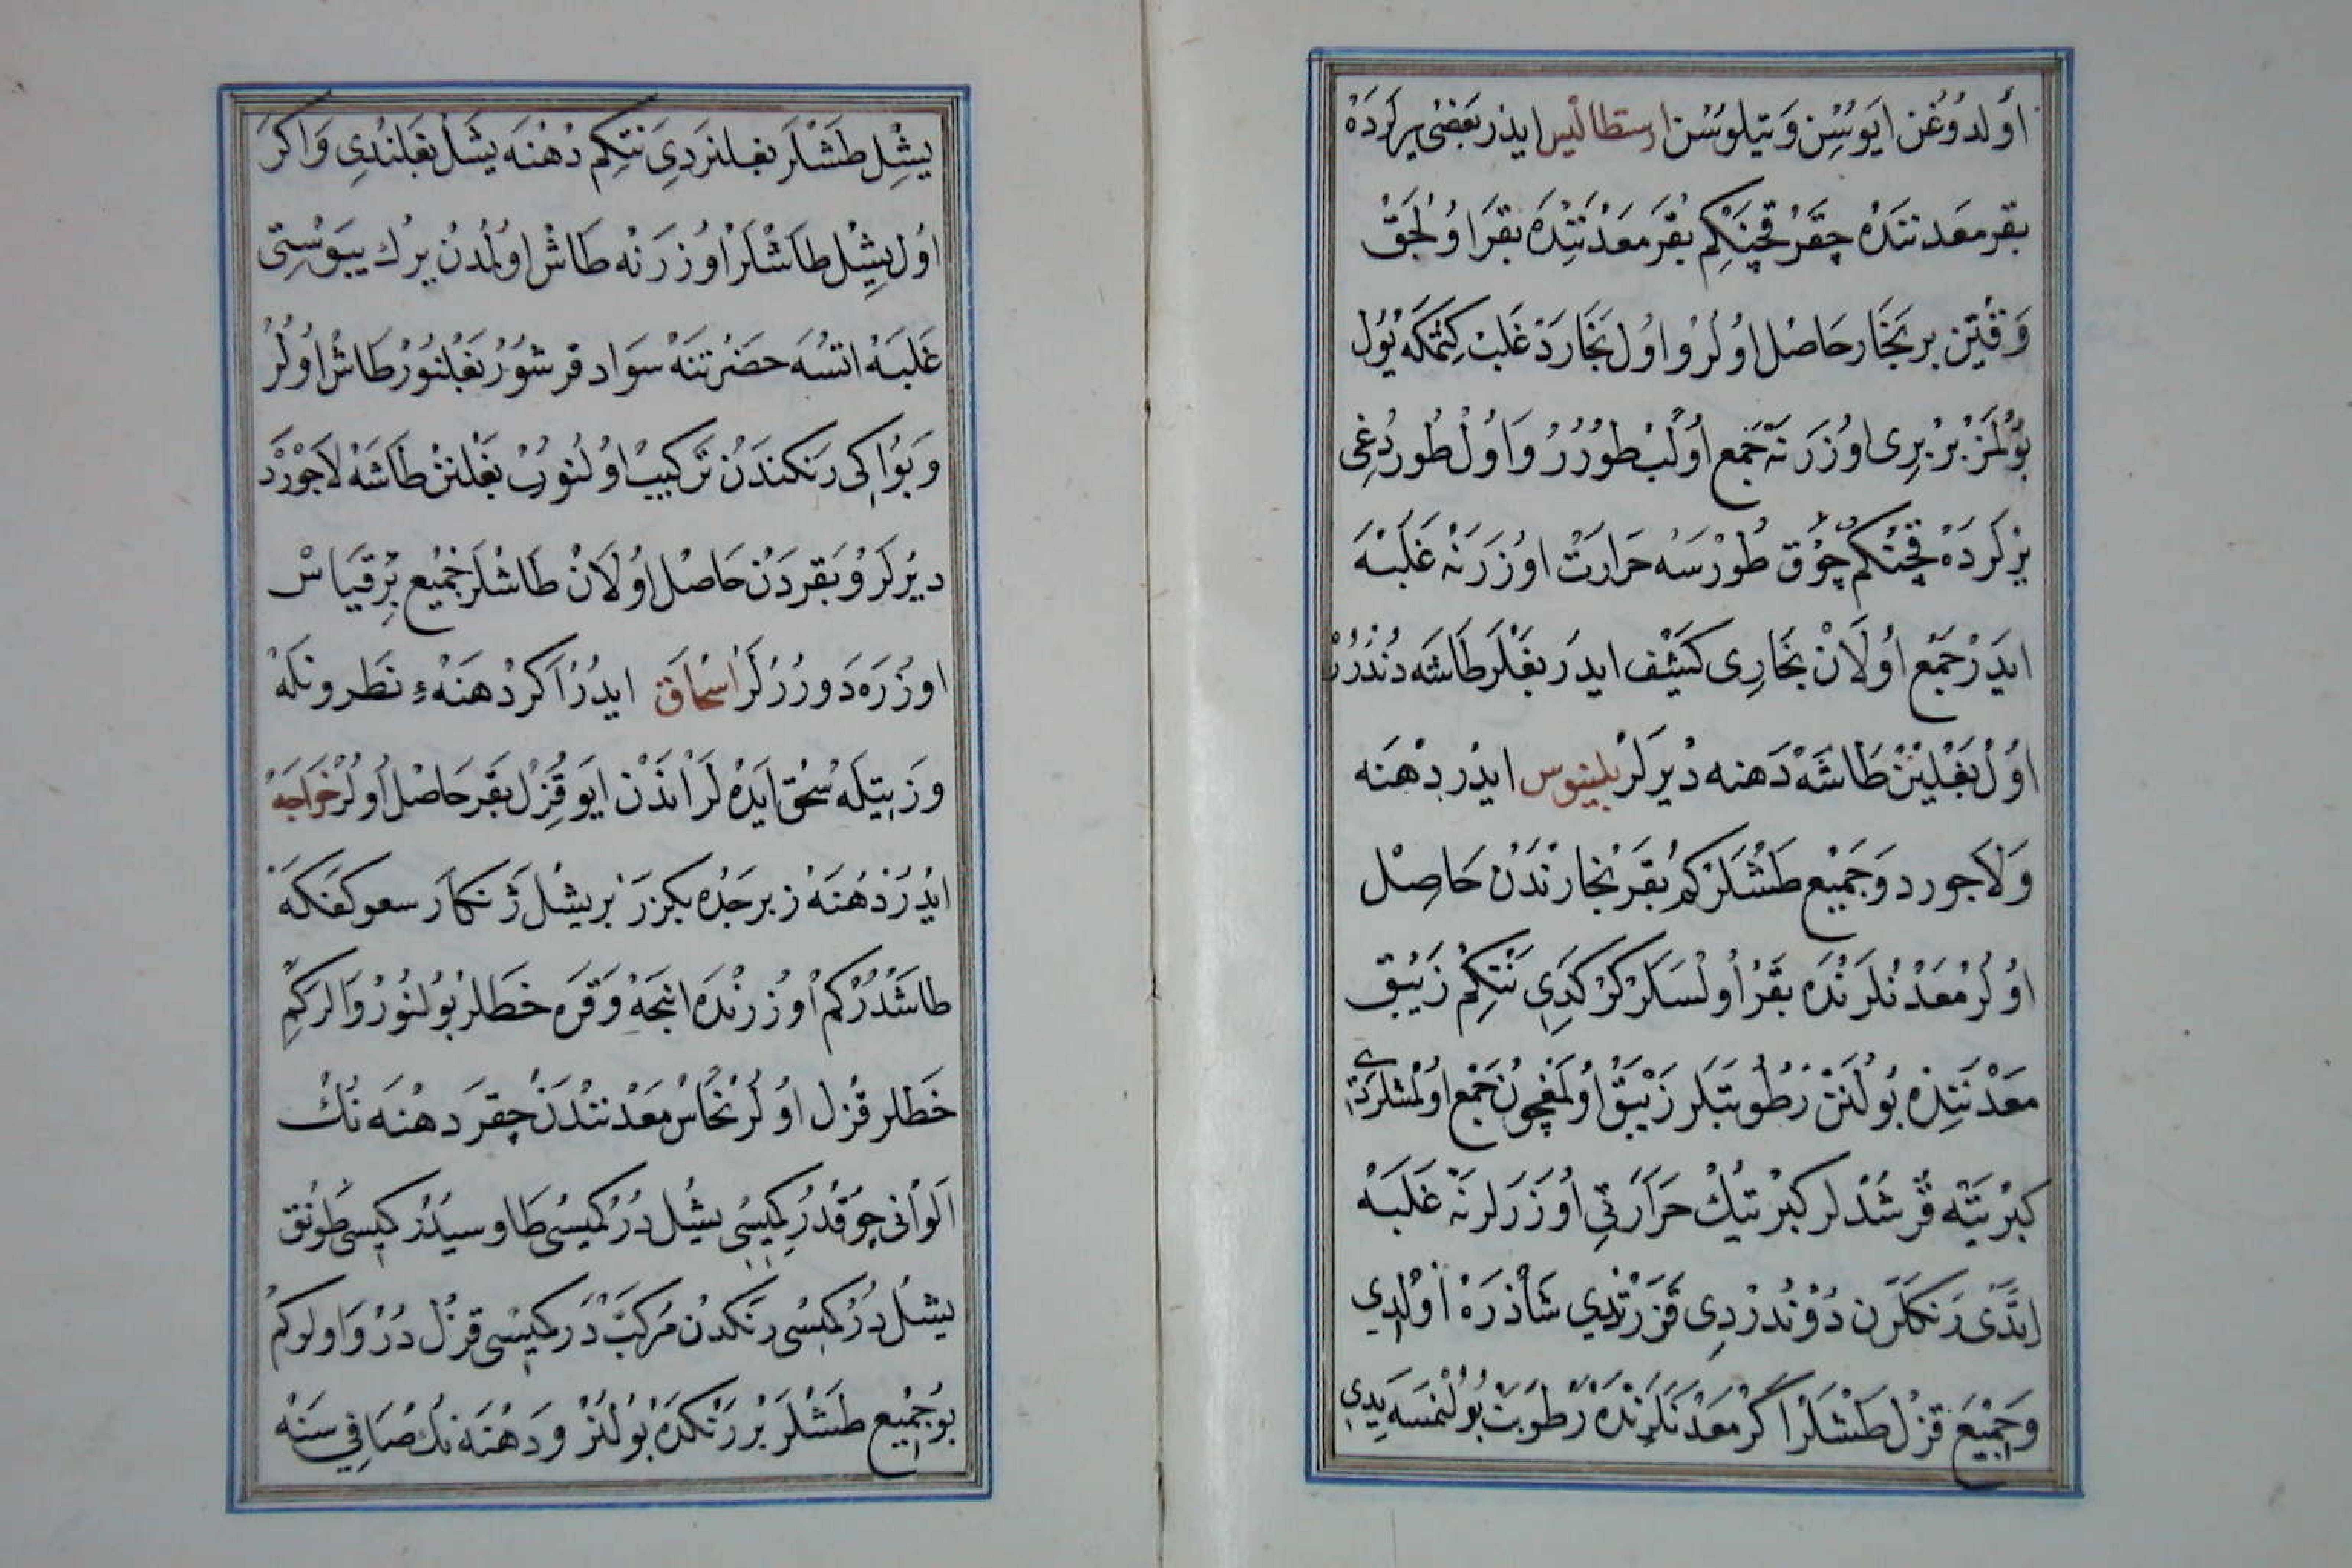 اولدوغن ايوسن وتيلوسن ارستطاليس ايذر بعضى يرلرده
بقر معدننده چقر قچنكم بقر معدننده بقر اولجق
وقتين بر بخار حاصل اولر و اول بخارد غلبت كتمكه يول
بولمز بر برى اوزرنه جمع اولب طورر و اول طوردغى
يرلرده قچنكم چوق طورسه حرارت اوزرنه غلبه
ايدر جمع اولان بخارى كثيف ايدر بغلر طاشه دندرر
اول بغلينن طاشه دهنه ديرلر بلينوس ايذر دهنه
ولاجورد و جميع طشلر كم بقر بخارندن حاصل
اولر معدنلرنده بقر اولسلر كركدى نتكم زيبق
معدننده بولنن رطوبتلر زيبق اولمغچون جمع اولمشلردى
كبريته قرشدلر كبريتك حرارتى اوزرلرنه غلبه
ايتدى رنكلرن دوندردى قزرتدى شاذره اولدى
وجميع قزل طشلر اكر معدنلرنده رطوبت بولنمسه يدى
يشل طشلر بغلنردى نتكم دهنه يشل بغلندى و اكر
اول يشل طاشلر اوزرنه طاش اولمدن يرك يبوستى
غلبه اتسه حضرتنه سواد قرشور بغلنور طاش اولر
و بو اكى رنكندن تركيب اولنوب بغلنن طاشه لاجورد
ديرلر و بقردن حاصل اولان طاشلر جميع بر قياس
اوزره دورلر اسحاق ايدر اكر دهنهء نطرونله
وزيتله سحق ايده لر اندن ايو قزل بقر حاصل اولر خواجه
ايذر ذهنه زبرجده بكزر بر يشل ژنكار
طاشدر كم اوزرنده انجه و قره خطلر بولنور و الر كم
خطلر قزل اولر نحاس معدنندن چقر دهنه نك
الوانى چوقدر كميسى يشل در كميسى طاوسيدر كميسى طونق
يشل در كميسى رنكدن مركب در كميسى قزل در و اولر كم
بو جميع طشلر بر رنكده بولنز و دهنه نك صافى سنه